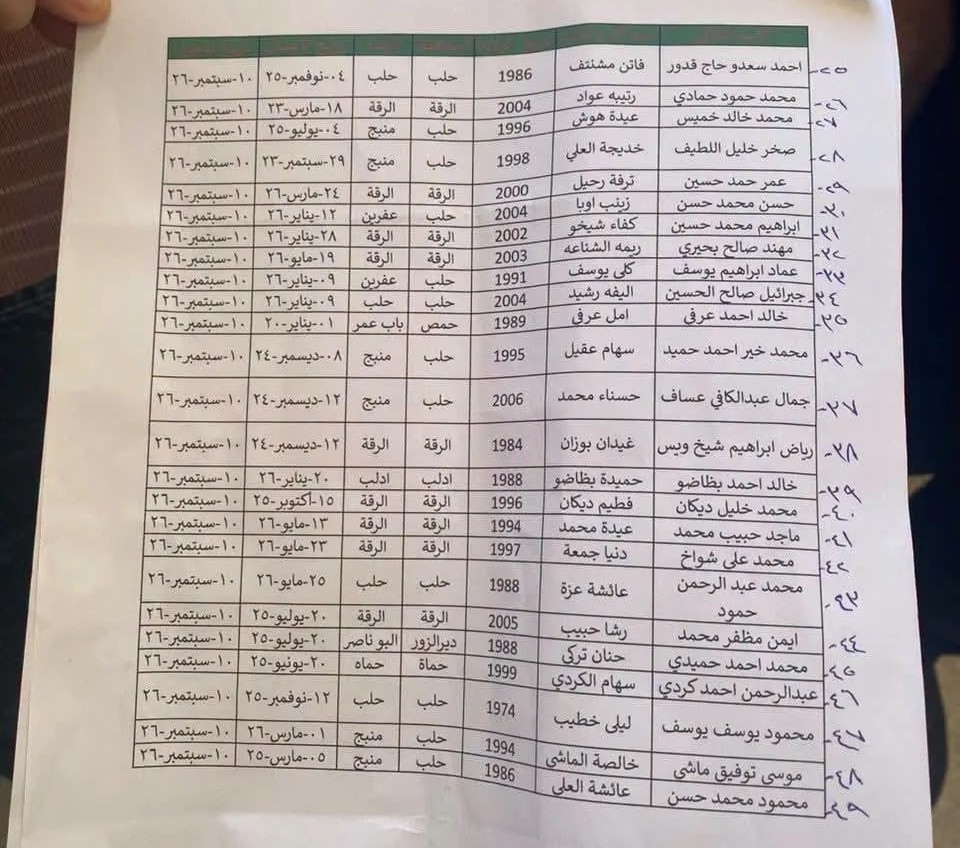 ٢٥- احمد سعدو حاج قدور فاتن مشنتف 1986 حلب حلب ٠٤-نوفمبر-٢٥ ١٠-سبتمبر-٢٦
٢٦- محمد حمود حمادي رتيبه عواد 2004 الرقة الرقة ١٨-مارس-٢٣ ١٠-سبتمبر-٢٦
٢٧- محمد خالد خميس عيدة هوش 1996 حلب منبج ٠٤-يوليو-٢٥ ١٠-سبتمبر-٢٦
٢٨- صخر خليل اللطيف خديجة العلي 1998 حلب منبج ٢٩-سبتمبر-٢٣ ١٠-سبتمبر-٢٦
٢٩- عمر حمد حسين ترفة رحيل 2000 الرقة الرقة ٢٤-مارس-٢٦ ١٠-سبتمبر-٢٦
٣٠- حسن محمد حسن زينب اوبا 2004 حلب عفرين ١٢-يناير-٢٦ ١٠-سبتمبر-٢٦
٣١- ابراهيم محمد حسين كفاء شيخو 2002 الرقة الرقة ٢٨-يناير-٢٦ ١٠-سبتمبر-٢٦
٣٢- مهند صالح بحيري ريمه الشناعه 2003 الرقة الرقة ١٩-مايو-٢٦ ١٠-سبتمبر-٢٦
٣٣- عماد ابراهيم يوسف كلي يوسف 1991 حلب عفرين ٠٩-يناير-٢٦ ١٠-سبتمبر-٢٦
٣٤- جبرائيل صالح الحسين اليفه رشيد 2004 حلب حلب ٠٩-يناير-٢٦ ١٠-سبتمبر-٢٦
٣٥- خالد احمد عرفي امل عرفي 1989 حمص باب عمر ٠١-يناير-٢٠ ١٠-سبتمبر-٢٦
٣٦- محمد خير احمد حميد سهام عقيل 1995 حلب منبج ٠٨-ديسمبر-٢٤ ١٠-سبتمبر-٢٦
٣٧- جمال عبدالكافي عساف حسناء محمد 2006 حلب منبج ١٢-ديسمبر-٢٤ ١٠-سبتمبر-٢٦
٣٨- رياض ابراهيم شيخ ويس غيدان بوزان 1984 الرقة الرقة ١٢-ديسمبر-٢٤ ١٠-سبتمبر-٢٦
٣٩- خالد احمد بظاضو حميدة بظاضو 1988 ادلب ادلب ٢٠-يناير-٢٦ ١٠-سبتمبر-٢٦
٤٠- محمد خليل ديكان فطيم ديكان 1996 الرقة الرقة ١٥-أكتوبر-٢٥ ١٠-سبتمبر-٢٦
٤١- ماجد حبيب محمد عيدة محمد 1994 الرقة الرقة ١٣-مايو-٢٦ ١٠-سبتمبر-٢٦
٤٢- محمد علي شواخ دنيا جمعة 1997 الرقة الرقة ٢٣-مايو-٢٦ ١٠-سبتمبر-٢٦
٤٣- محمد عبد الرحمن حمود عائشة عزة 1988 حلب حلب ٢٥-مايو-٢٦ ١٠-سبتمبر-٢٦
٤٤- ايمن مظفر محمد رشا حبيب 2005 الرقة الرقة ٢٠-يوليو-٢٥ ١٠-سبتمبر-٢٦
٤٥- محمد احمد حميدي حنان تركي 1988 ديرالزور البو ناصر ٢٠-يوليو-٢٥ ١٠-سبتمبر-٢٦
٤٦- عبدالرحمن احمد كردي سهام الكردي 1999 حماة حماه ٢٠-يونيو-٢٥ ١٠-سبتمبر-٢٦
٤٧- محمود يوسف يوسف ليلى خطيب 1974 حلب حلب ١٢-نوفمبر-٢٥ ١٠-سبتمبر-٢٦
٤٨- موسى توفيق ماشي خالصة الماشي 1994 حلب منبج ٠١-مارس-٢٦ ١٠-سبتمبر-٢٦
٤٩- محمود محمد حسن عائشة العلي 1986 حلب منبج ٠٥-مارس-٢٥ ١٠-سبتمبر-٢٦